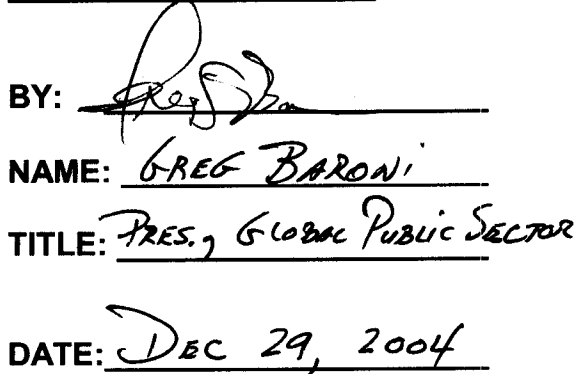 BY: Greg Baroni
NAME: GREG BARONI
TITLE: PRES., GLOBAL PUBLIC SECTOR
DATE: DEC 29, 2004